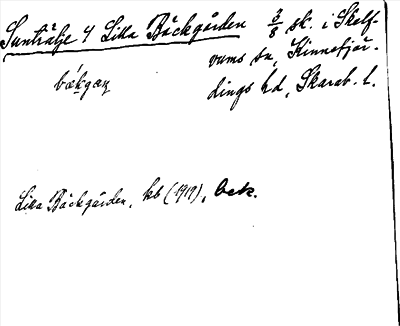 Sunträlje 4 Lilla Bäckgården 3/8 sk. i Skälf-
vums sn, Kinnefjär-
dings hd, Skarab. l.
bǽkgaɳ
Lilla Bäckgården, kb (1919), beb.